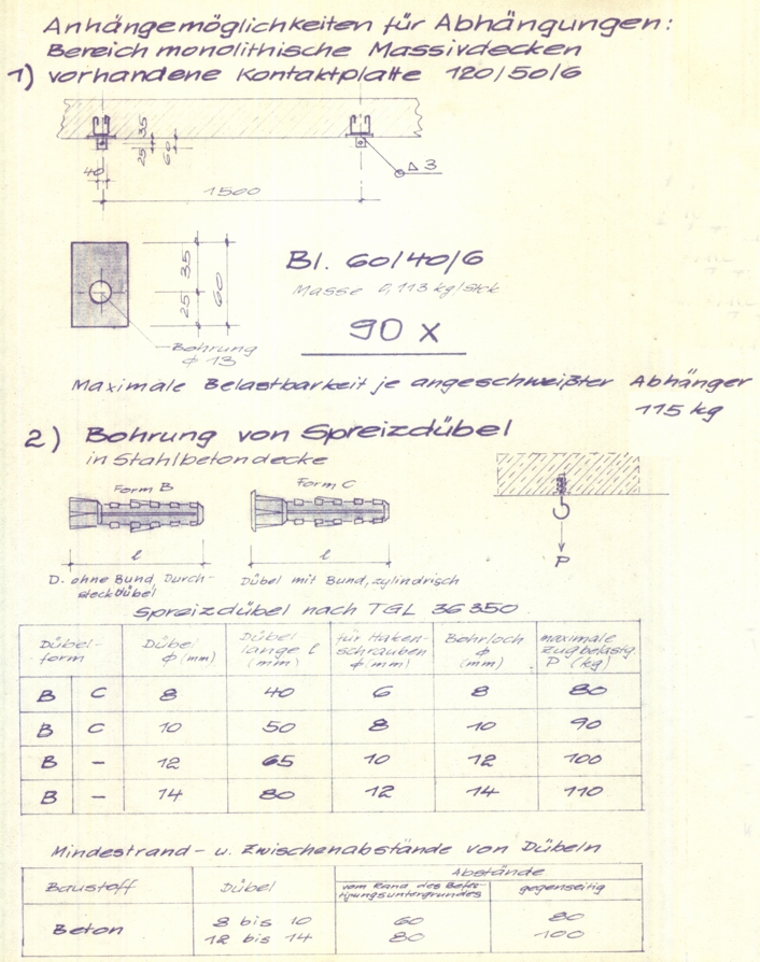 Anhängemöglichkeiten für Abhängungen:
Bereich monolithische Massivdecken
1) vorhandene Kontaktplatte 120/50/6
35
25
60
40
Δ 3
1500
35
25
60
Bl. 60/40/6
Masse 0,113 kg/stck
90 x
Bohrung
ϕ 13
Maximale Belastbarkeit je angeschweißter Abhänger
115 kg
2) Bohrung von Spreizdübel
in Stahlbetondecke
Form B
Form C
l
l
P
D. ohne Bund, Durch-
steckdübel
Dübel mit Bund, zylindrisch
Spreizdübel nach TGL 36350
Dübel-
form
Dübel
ϕ (mm)
Dübel
länge l
(mm)
für Haken-
schrauben
ϕ (mm)
Bohrloch
ϕ
(mm)
maximale
Zugbelastg.
P (kg)
B C 8 40 6 8 80
B C 10 50 8 10 90
B – 12 65 10 12 100
B – 14 80 12 14 110
Mindestrand- u. Zwischenabstände von Dübeln
Baustoff
Dübel
Abstände
vom Rand des Befes-
tigungsuntergrundes
gegenseitig
Beton
8 bis 10 60 80
12 bis 14 80 100